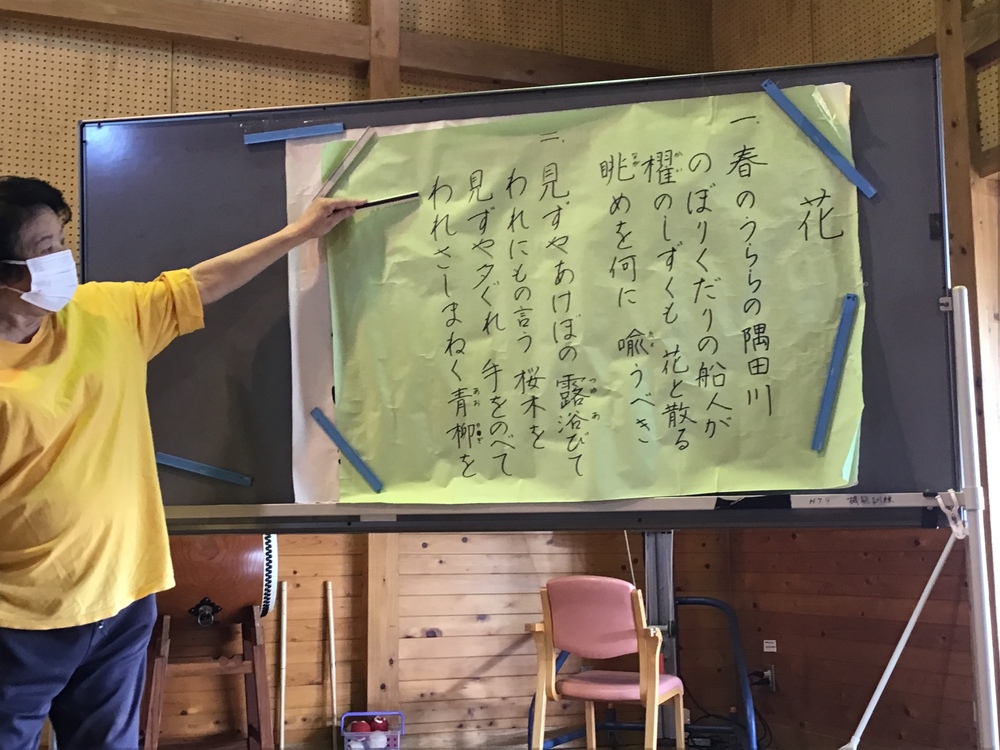 花
一. 春のうららの隅田川
のぼりくだりの船人が
櫂のしずくも 花と散る
眺めを何に 喩うべき
二. 見ずやあけぼの 露浴びて
われにもの言う 桜木を
見ずや夕ぐれ 手をのべて
われさしまねく 青柳を